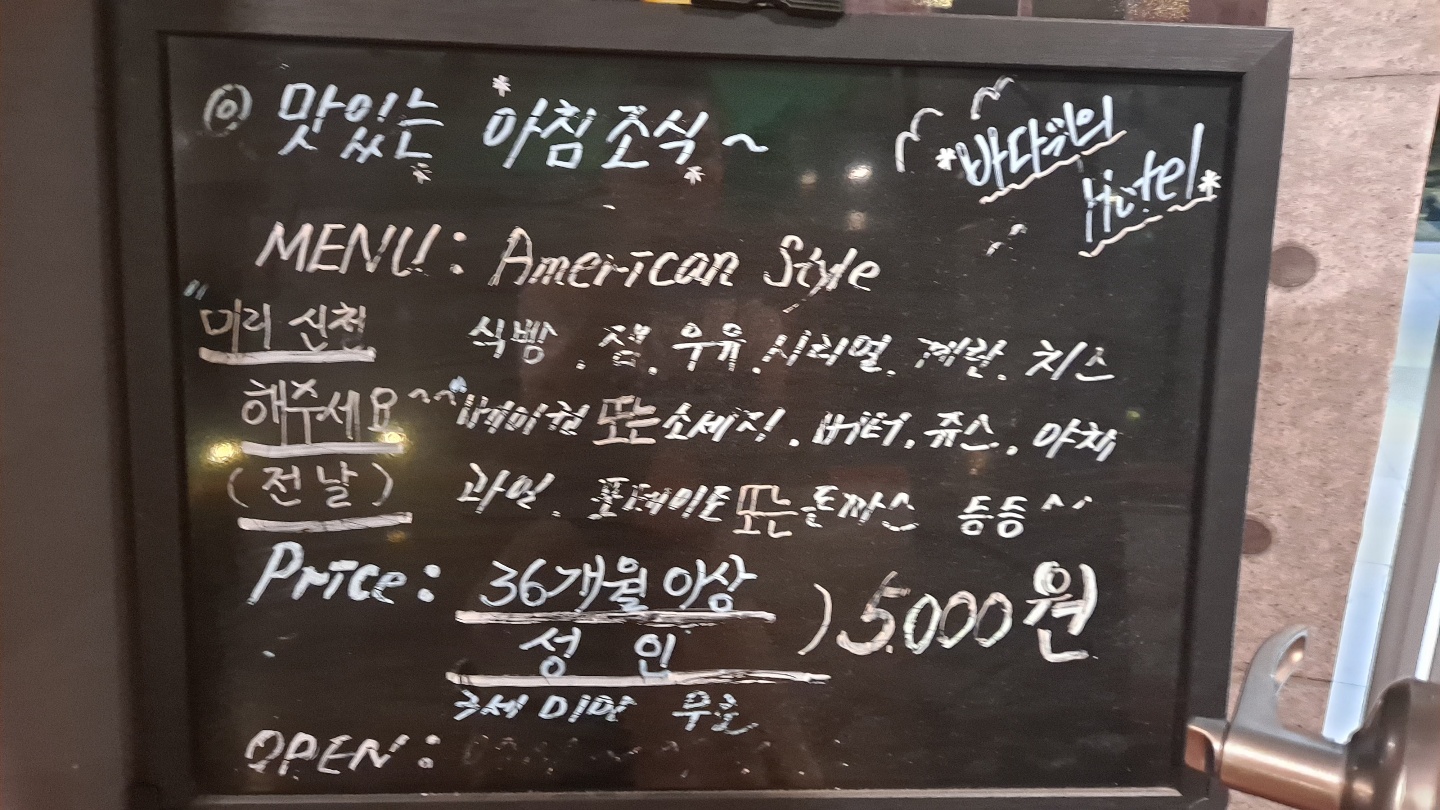 맛있는 아침조식~
바다위의
Hotel
MENU: American Style
"미리 신청
해주세요~^^"
(전날)
식빵. 잼. 우유. 시리얼. 계란. 치즈
베이컨 또는 소세지. 버터. 쥬스. 야채
과일. 포테이토 또는 돈까스 등등^^
Price: 36개월 이상
성 인
) 5.000원
3세 미만 무료
OPEN: